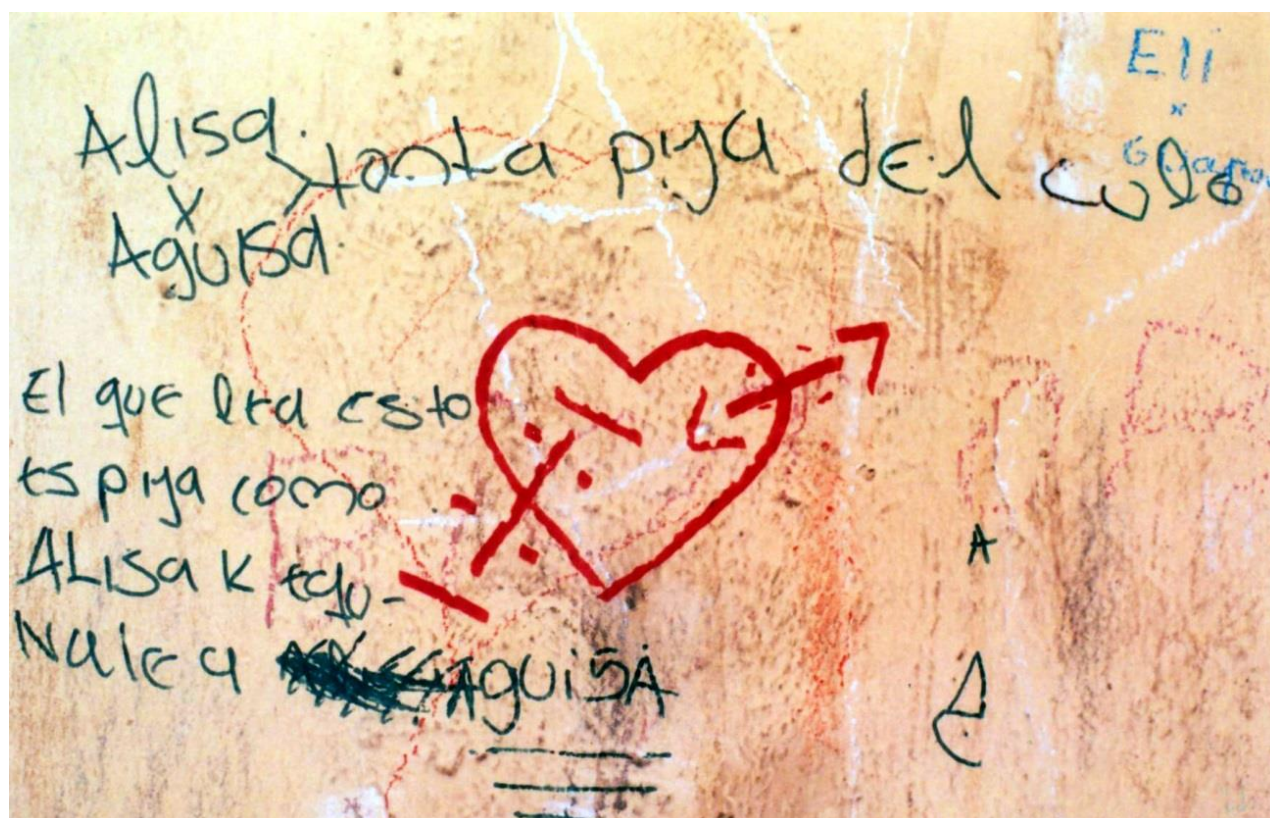 Alisa.
x
Aguisa.
tonta piya del culo
Eli
x
El que lea esto
es piya como
ALisa K
Aguisa
A